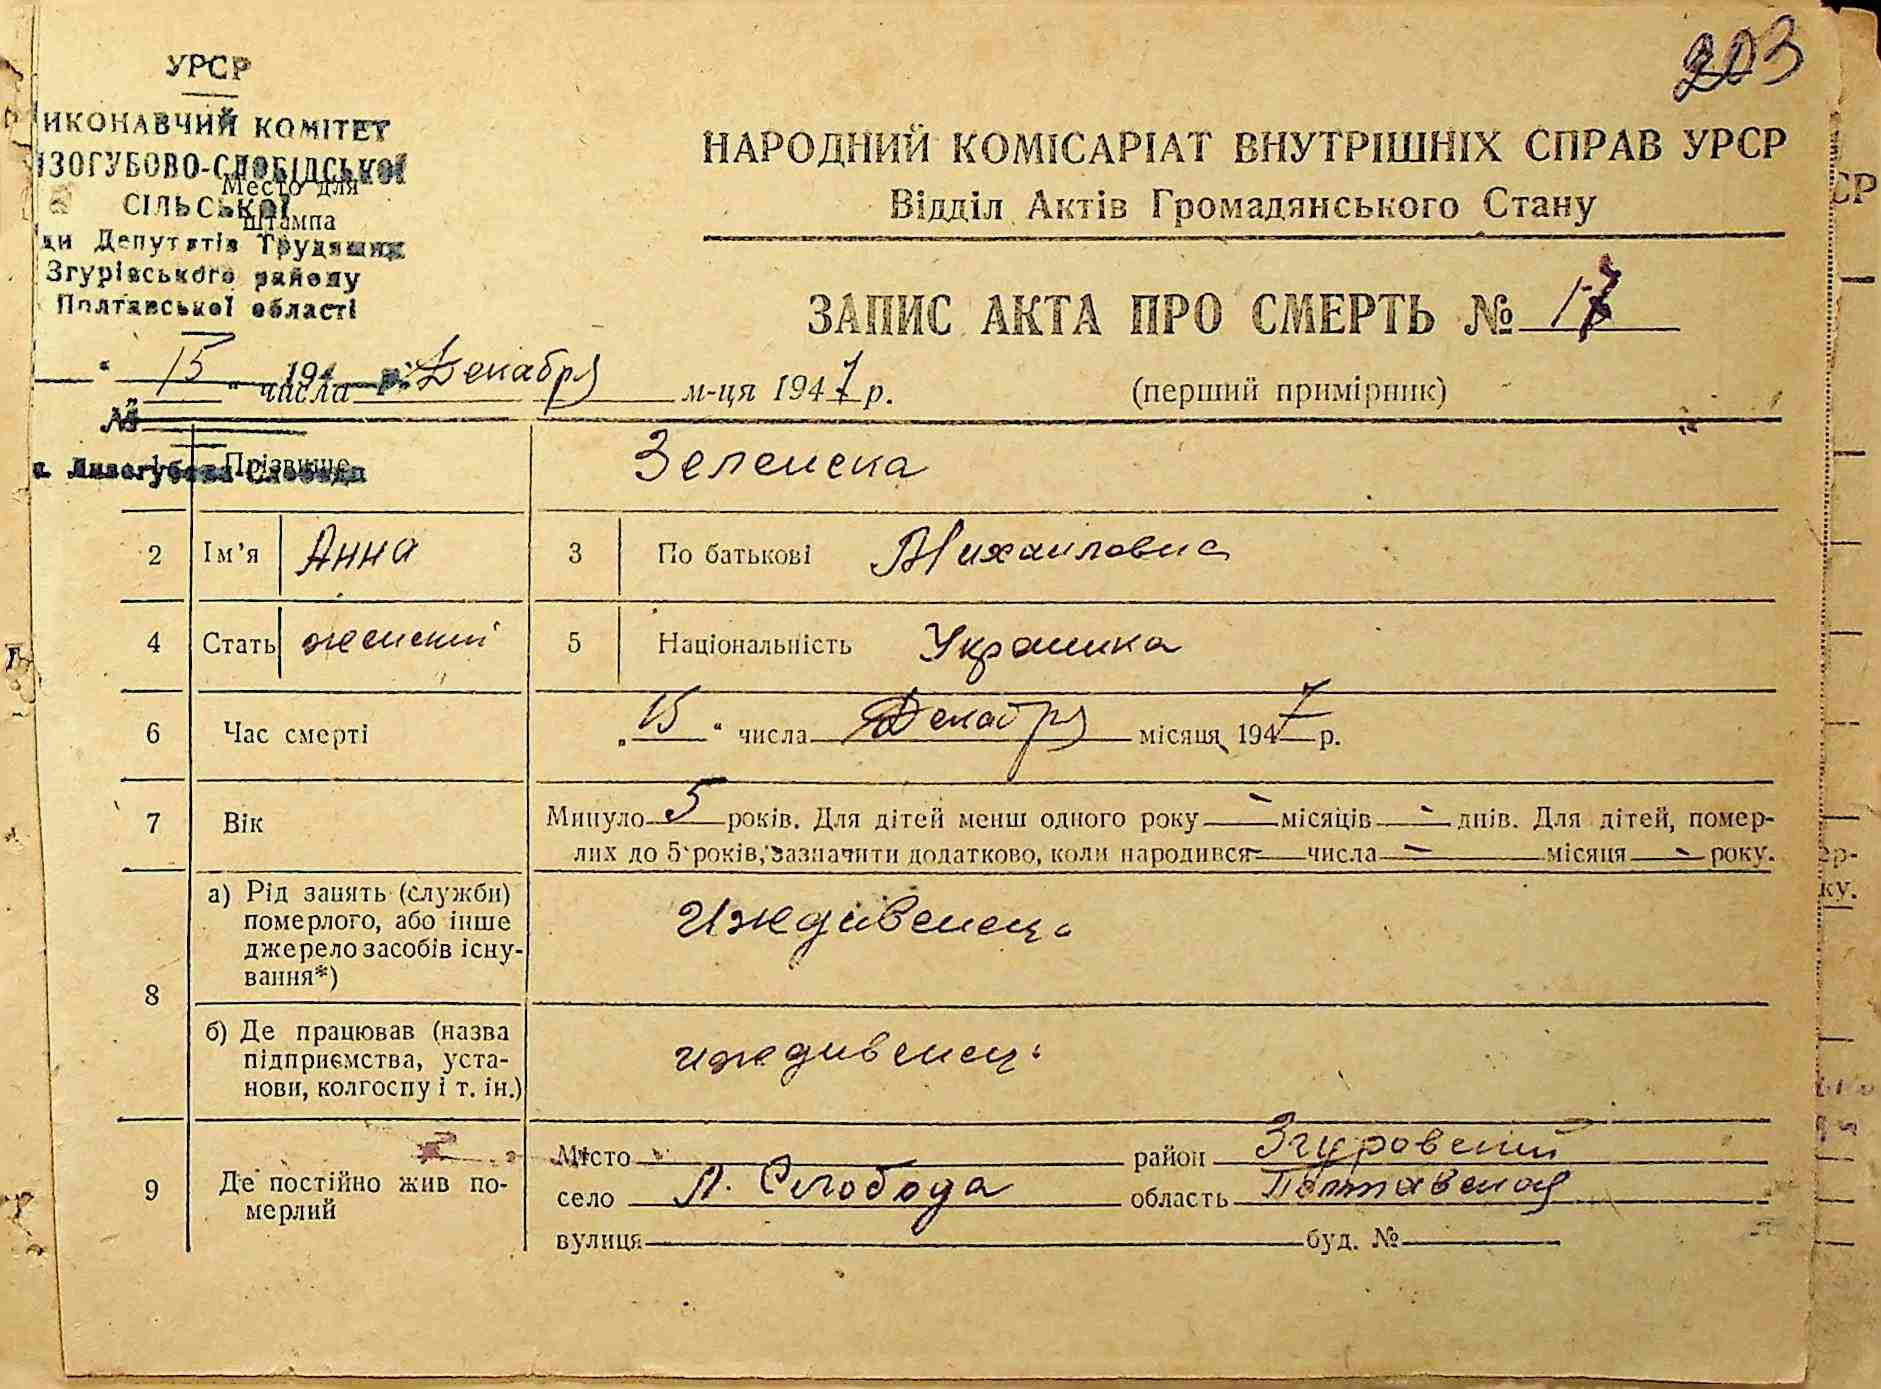 203
УРСР
ИКОНАВЧИЙ КОМІТЕТ
ИЗОГУБОВО-СЛОБІДСЬКОЇ
Место для
СІЛЬСЬКОЇ
штампа
ди Депутатів Трудящих
Згурівського району
Полтавської області
НАРОДНИЙ КОМІСАРІАТ ВНУТРІШНІХ СПРАВ УРСР
Відділ Актів Громадянського Стану
ЗАПИС АКТА ПРО СМЕРТЬ № 17
„ 15 “ числа Декабря м-ця 1947 р. (перший примірник)
194 р.
№
с. Лизогубова-Слобода
1 Прізвище Зеленска
2 Ім’я Анна 3 По батькові Михаиловна
4 Стать женский 5 Національність Украинка
6 Час смерті „ 15 “ числа Декабря місяця 1947 р.
7 Вік Минуло 5 років. Для дітей менш одного року - місяців - днів. Для дітей, помер-
лих до 5 років, зазначити додатково, коли народився - числа - місяця - року.
8 а) Рід занять (служби) померлого, або інше джерело засобів існу-вання*) Иждивенец.
б) Де працював (назва підприємства, уста-нови, колгоспу і т. ін.) иждивенец.
9 Де постійно жив по-мерлий
Місто - район Згуровский
село Л. Слобода область Полтавская
вулиця буд. №